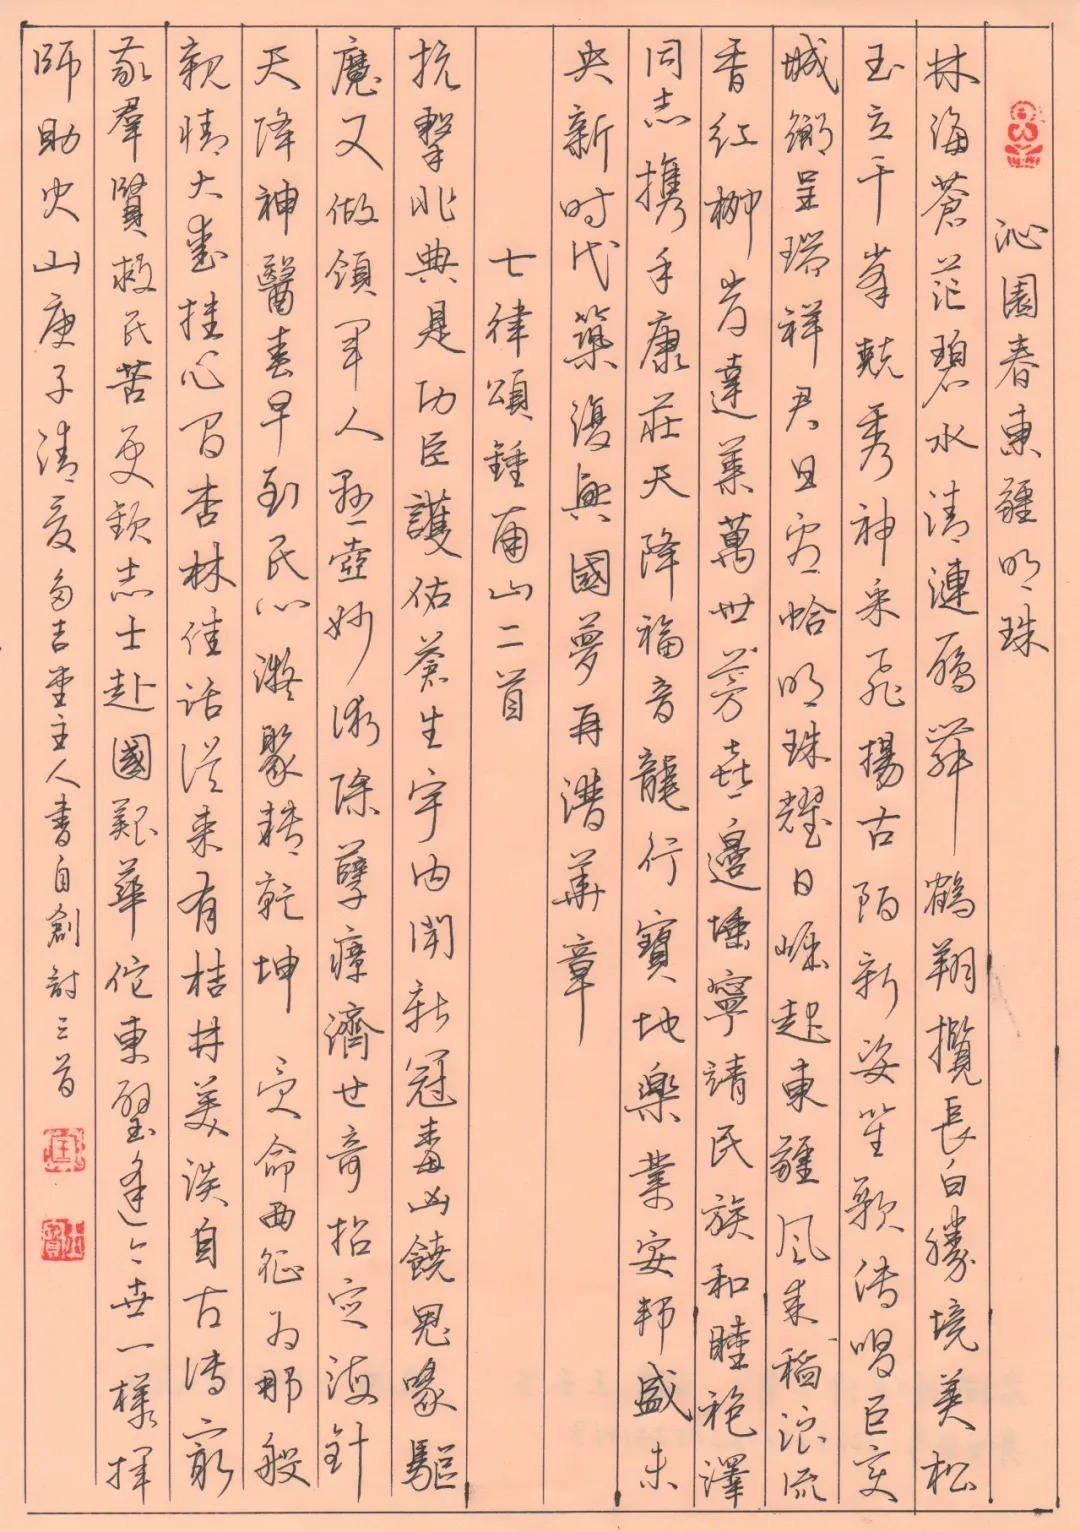 沁園春東疆明珠
林海蒼茫碧水清漣雁舞鶴翔攬長白勝境美松
玉立千峯競秀神采飛揚古陌新姿笙歌傳唱巨变
城鄉呈瑞祥君且看恰明珠耀日崛起東疆風来稻浪流
香红柳岸達萊萬世芳喜邊埵寧靖民族和睦袍澤
同志携手康莊天降福音龍行寶地樂業安邦盛未
央新时代築復興國夢再譜華章
七律頌鍾南山二首
抗擊非典是功臣護佑蒼生宇内聞新冠毒凶饒鬼喙驅
魔又做領軍人懸壺妙術除孽瘴濟世奇招定海針
天降神醫春早到民心凝聚耕乾坤 受命西征为那般
親情大愛挂心间杏林佳话從来有桔井美談自古傳窮
羣賢救民苦更欽志士赴國艱華佗東壁逢今世一樣揮
師助火山庚子清夏多吉堂主人書自創詩三首